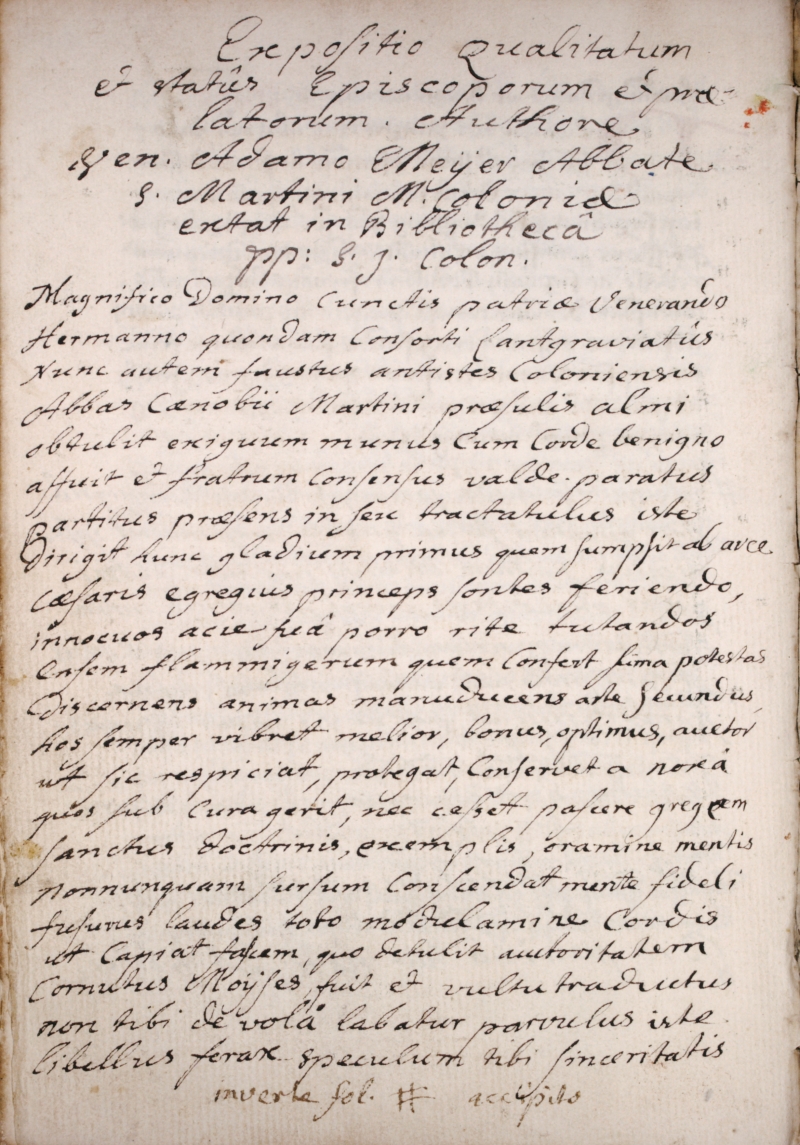 Expositio Qualitatum
et statûs Episcoporum et præ-
latorum. Authore
Ven. Adamo Meijer Abbate
S. Martini M. Coloniæ
extat in Bibliothecâ
pp: S. J. Colon.
Magnifico Domino Cunctis patriæ Venerando
Hermanno quondam Consorti Lantgraviatûs
Nunc autem faustus antistes Coloniensis
Abbas Cænobii Martini præsulis almi
obtulit exiguum munus Cum Corde benigno
affuit et fratrum Consensus valde paratus
partitus præsens in seu tractatulus iste
Dirigit hunc gladium primus quem sumpsit ab arce
Cæsaris egregius princeps sontes feriendo,
innocuos acie suâ porro rite tutandos
Ensem flammigerum quem Confert sima potestas
Discernens animas manuducens arte Secundus,
hos semper vibret melior, bonus, optimus, auctor
ut sic respiciat, protegat, Conservet a noxâ
quos sub Cura gerit, nec cesset pascere gregem
sanctus doctrinis, exemplis, oramine mentis
nonnunquam sursum Conscendat mente fideli
fusurus laudes toto modulamine Cordis
ut Capiat fascem, quo detulit auctoritatem
Cornutus Moijses, fuit et vultu traductus
non tibi de volâ labatur parvulus iste
libellus ferax speculum tibi sinceritatis
inverte fol. # accipito